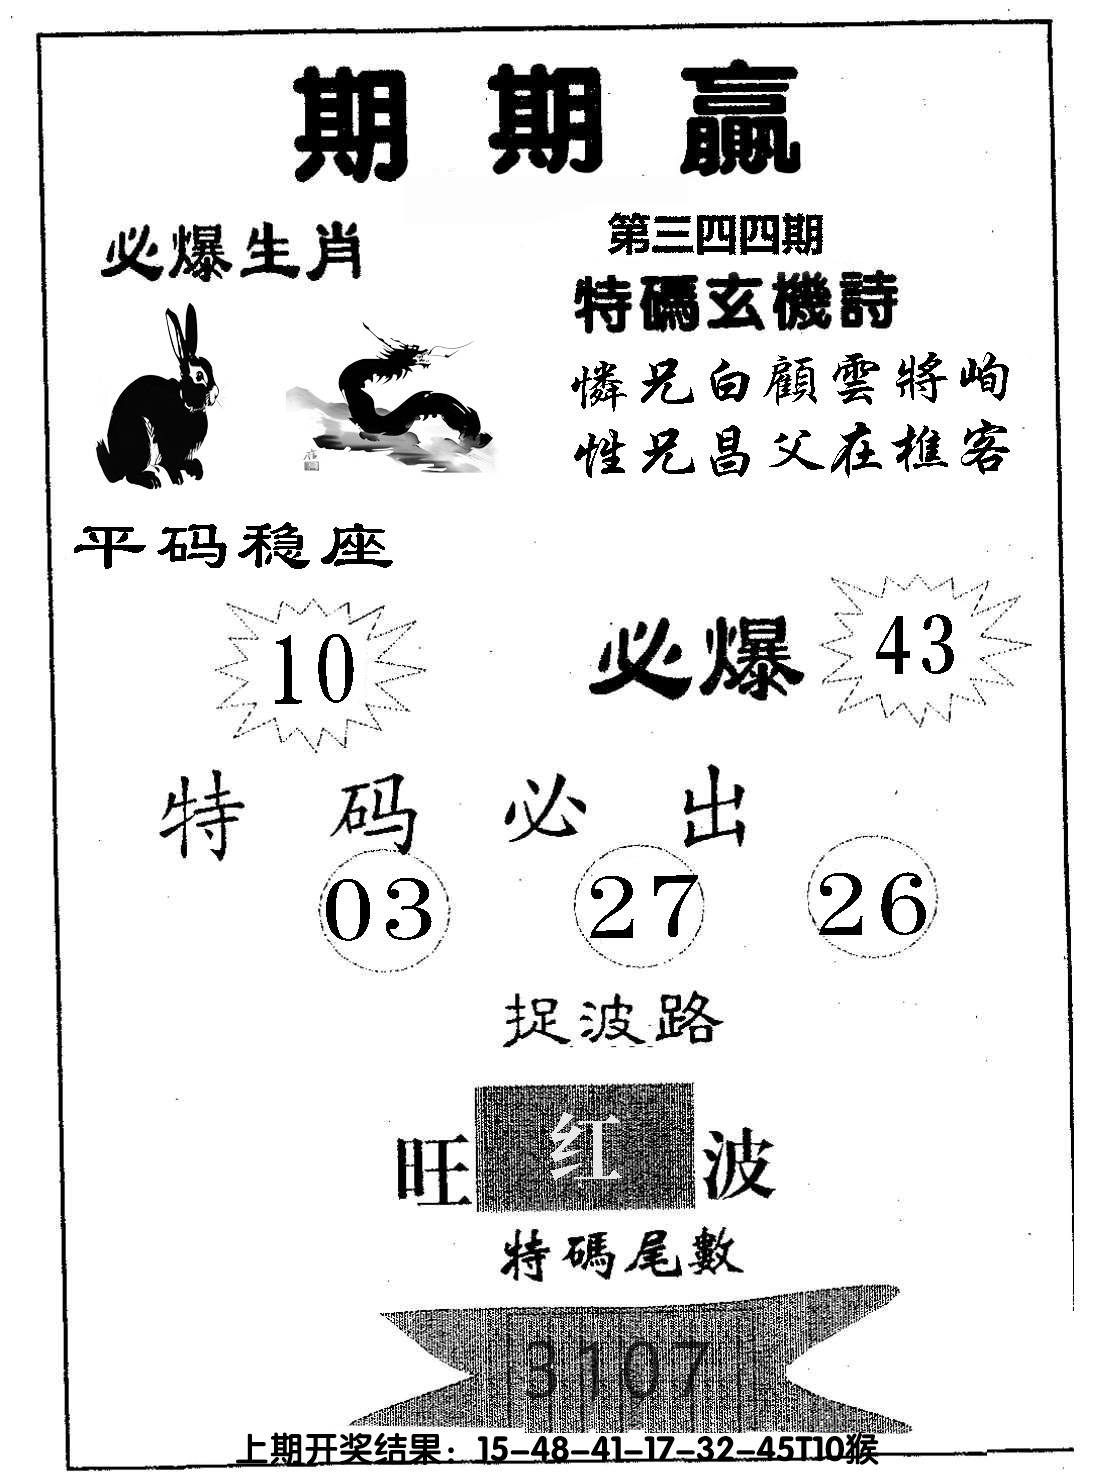 期期贏
必爆生肖
第三四四期
特碼玄機詩
憐兄白顧雲將峋
性兄昌父在樵客
平码稳座
10
必爆 43
特码必出
03 27 26
捉波路
旺红波
特碼尾數
3107
上期开奖结果：15-48-41-17-32-45T10猴